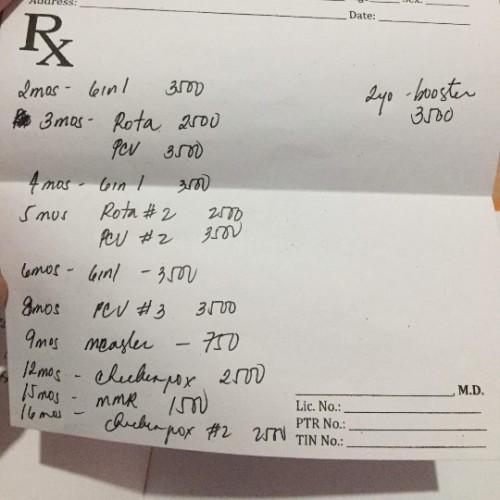 Address:
Date:
Rx
2mos - 6in1 3500
3mos - Rota 2500
PCV 3500
4mos - 6in1 3500
5mos Rota #2 2500
PCV #2 3500
6mos - 6in1 - 3500
8mos PCV #3 3500
9mos measles - 750
12mos - chickenpox 2500
15mos - MMR 1500
16mos - chickenpox #2 2500
2yo - booster
3500
M.D.
Lic. No.:
PTR No.:
TIN No.: